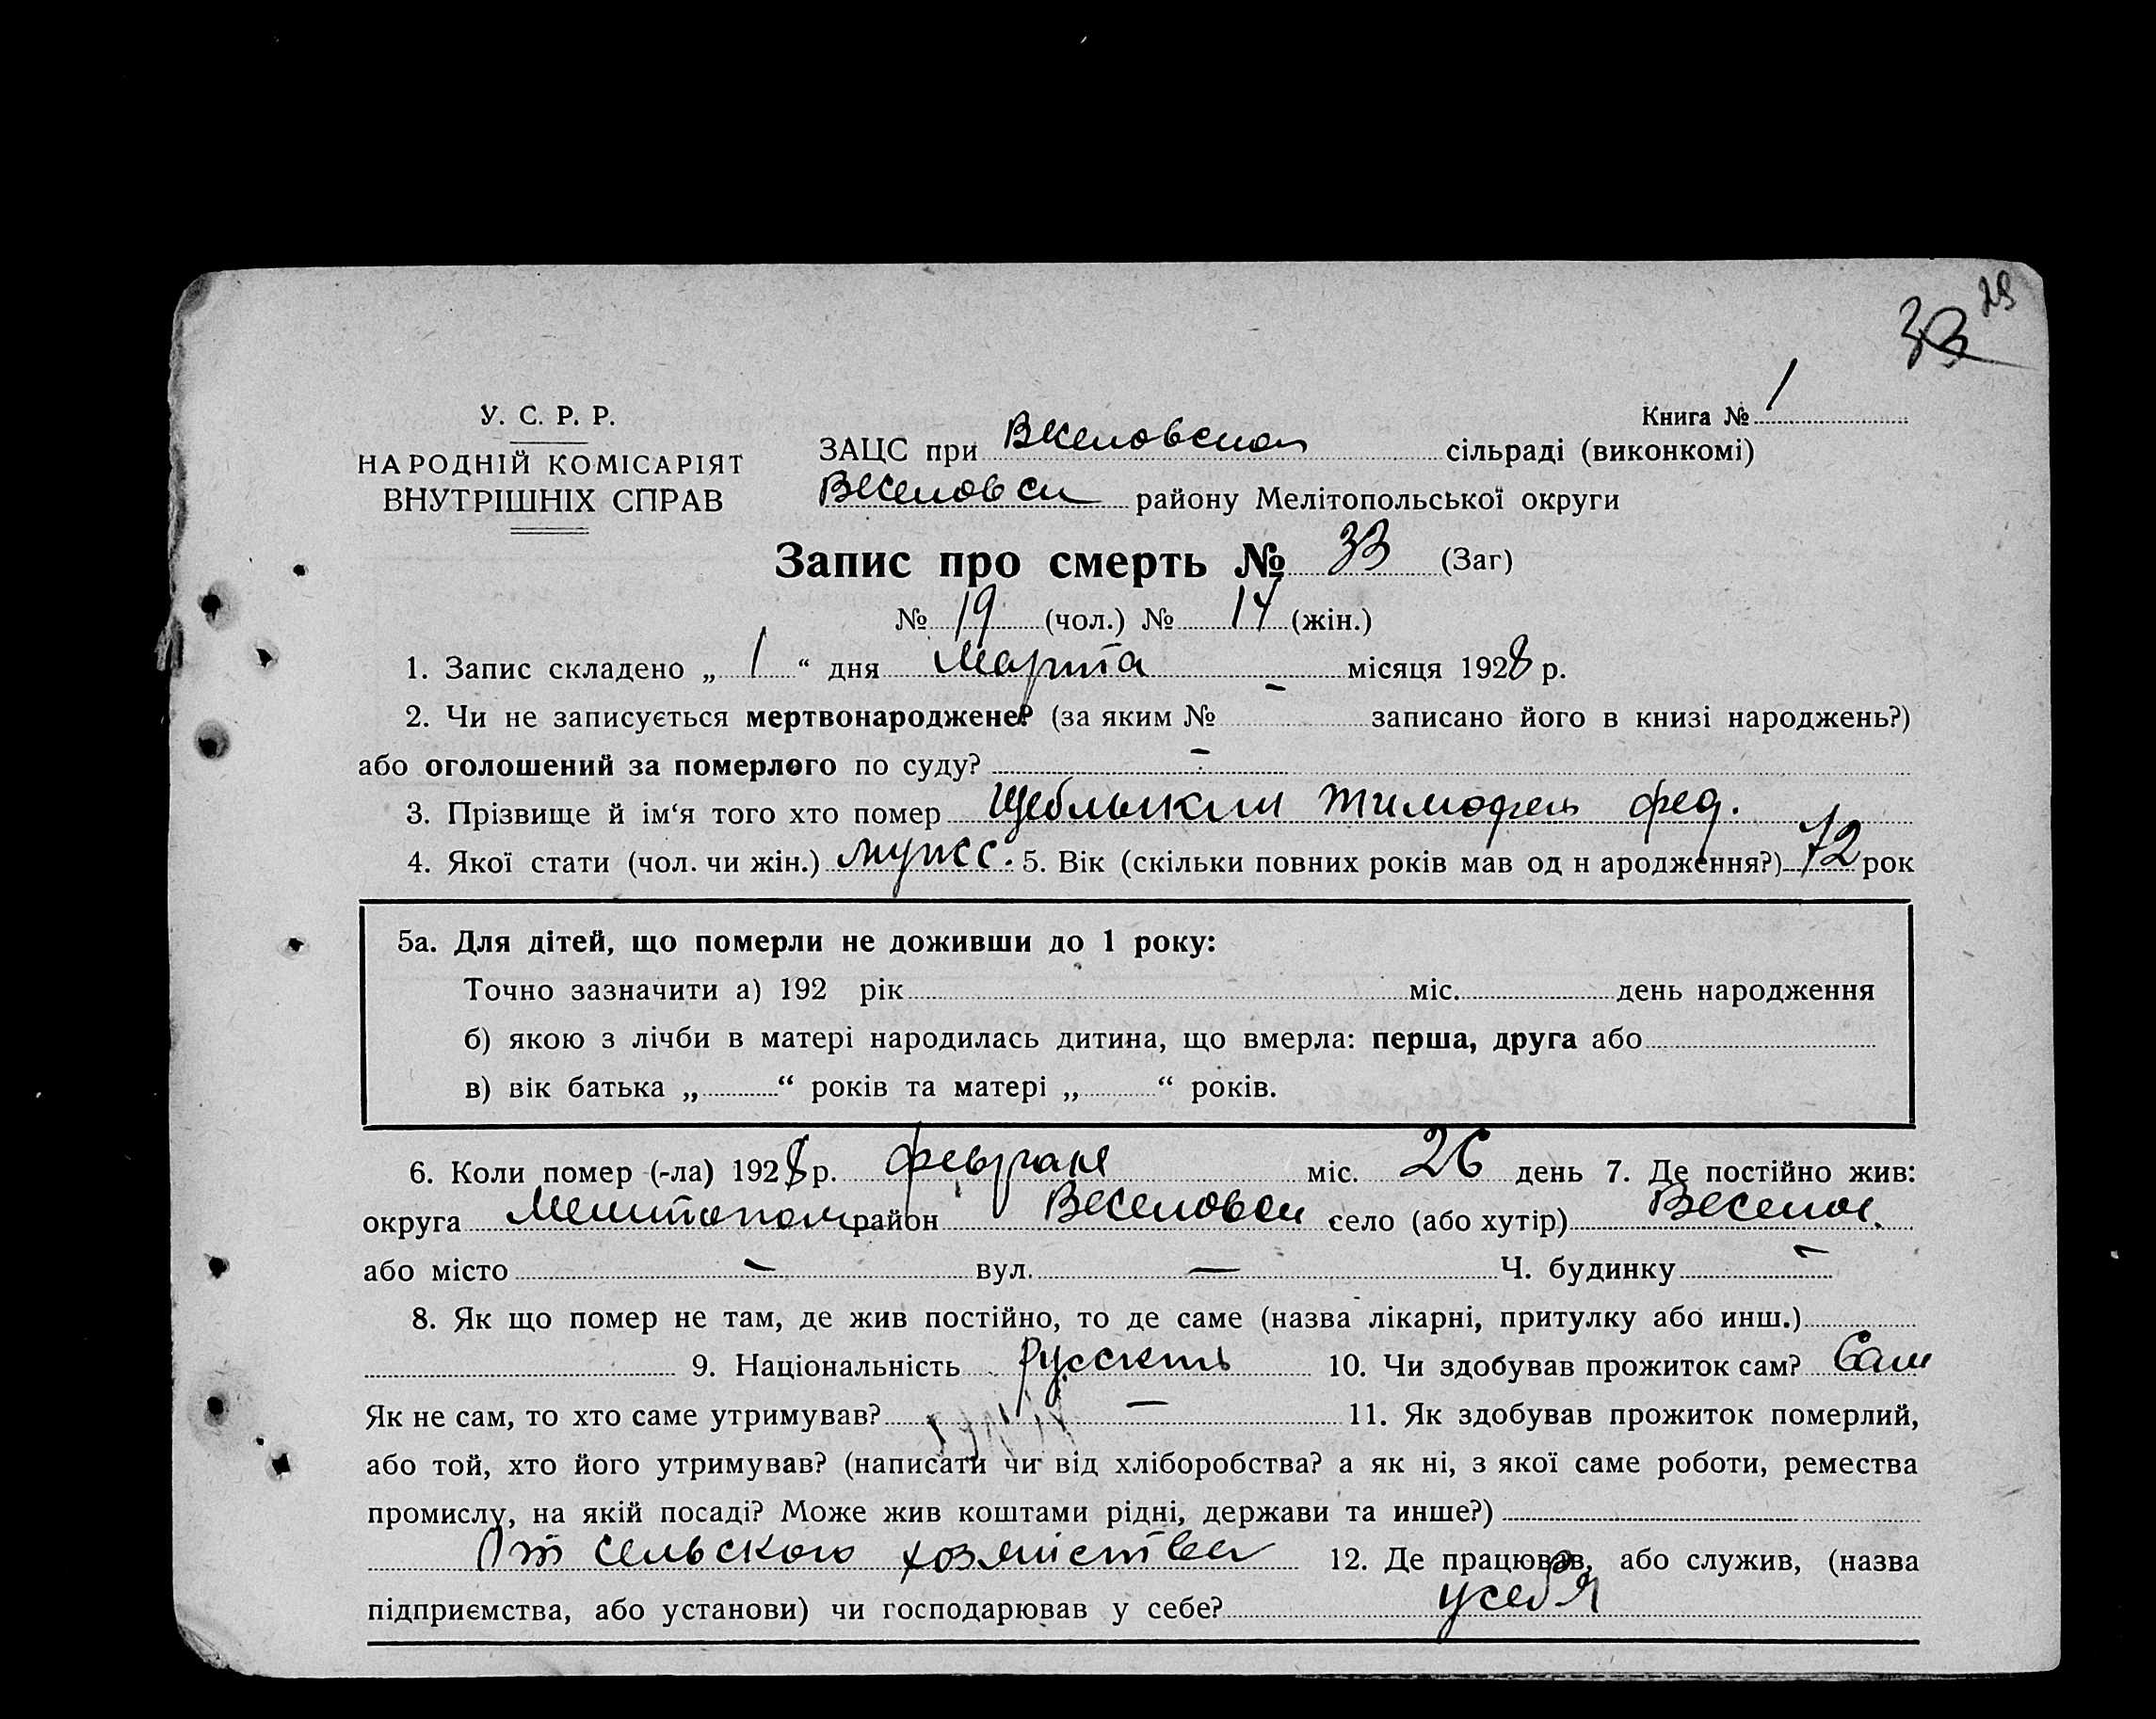 33 29
Книга № 1
У. С. Р. Р.
НАРОДНІЙ КОМІСАРІЯТ
ВНУТРІШНІХ СПРАВ
ЗАЦС при Веселовском сільраді (виконкомі)
Веселовск району Мелітопольської округи
Запис про смерть № 33 (Заг)
№ 19 (чол.) № 14 (жін.)
1. Запис складено „ 1 “ дня Марта місяця 1928 р.
2. Чи не записується мертвонароджене? (за яким № - записано його в книзі народжень?)
або оголошений за померлого по суду? -
3. Прізвище й ім‘я того хто помер Щеблыкин Тимофей Фед.
4. Якої стати (чол. чи жін.) мужс. 5. Вік (скільки повних років мав од н ародження?) 72 рок
5а. Для дітей, що померли не доживши до 1 року:
Точно зазначити а) 192 рік міс. день народження
б) якою з лічби в матері народилась дитина, що вмерла: перша, друга або
в) вік батька „ “ років та матері „ “ років.
6. Коли помер (-ла) 1928 р. февраля міс. 26 день 7. Де постійно жив:
округа Мелитопол район Веселовск село (або хутір) Веселое.
або місто — вул. — Ч. будинку —
8. Як що помер не там, де жив постійно, то де саме (назва лікарні, притулку або инш.)
9. Національність 10. Чи здобував прожиток сам? Сам
Як не сам, то хто саме утримував? — 11. Як здобував прожиток померлий,
або той, хто його утримував? (написати чи від хліборобства? а як ні, з якої саме роботи, ремества
промислу, на якій посаді? Може жив коштами рідні, держави та инше?)
От сельского хозяиства 12. Де працював, або служив, (назва
підприємства, або установи) чи господарював у себе? у себя